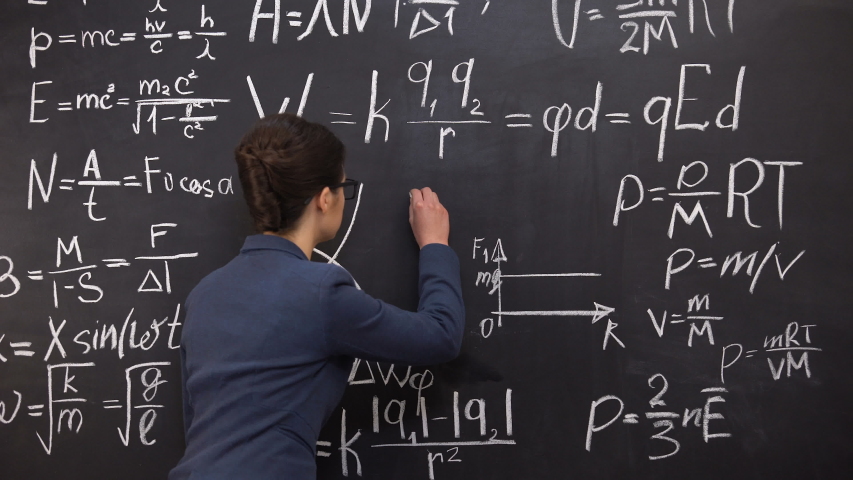 p = mc = hν/c = h/λ
H = λN
Δ1
V =
2M
RT
E = mc² = m₂c²/√1-
c²
W = k q₁q₂/r = φd = qEd
N = A/t = Fυcosα
p = ρ/M RT
M/1-S = F/Δl
F₁
mg
0
R
p = m/v
= X sin(ωt
v = m/M
p = mRT/vM
ω = √k/m = √g/ℓ
ΔWφ
= k |q₁|-|q₂|/r²
p = 2/3 nE̅